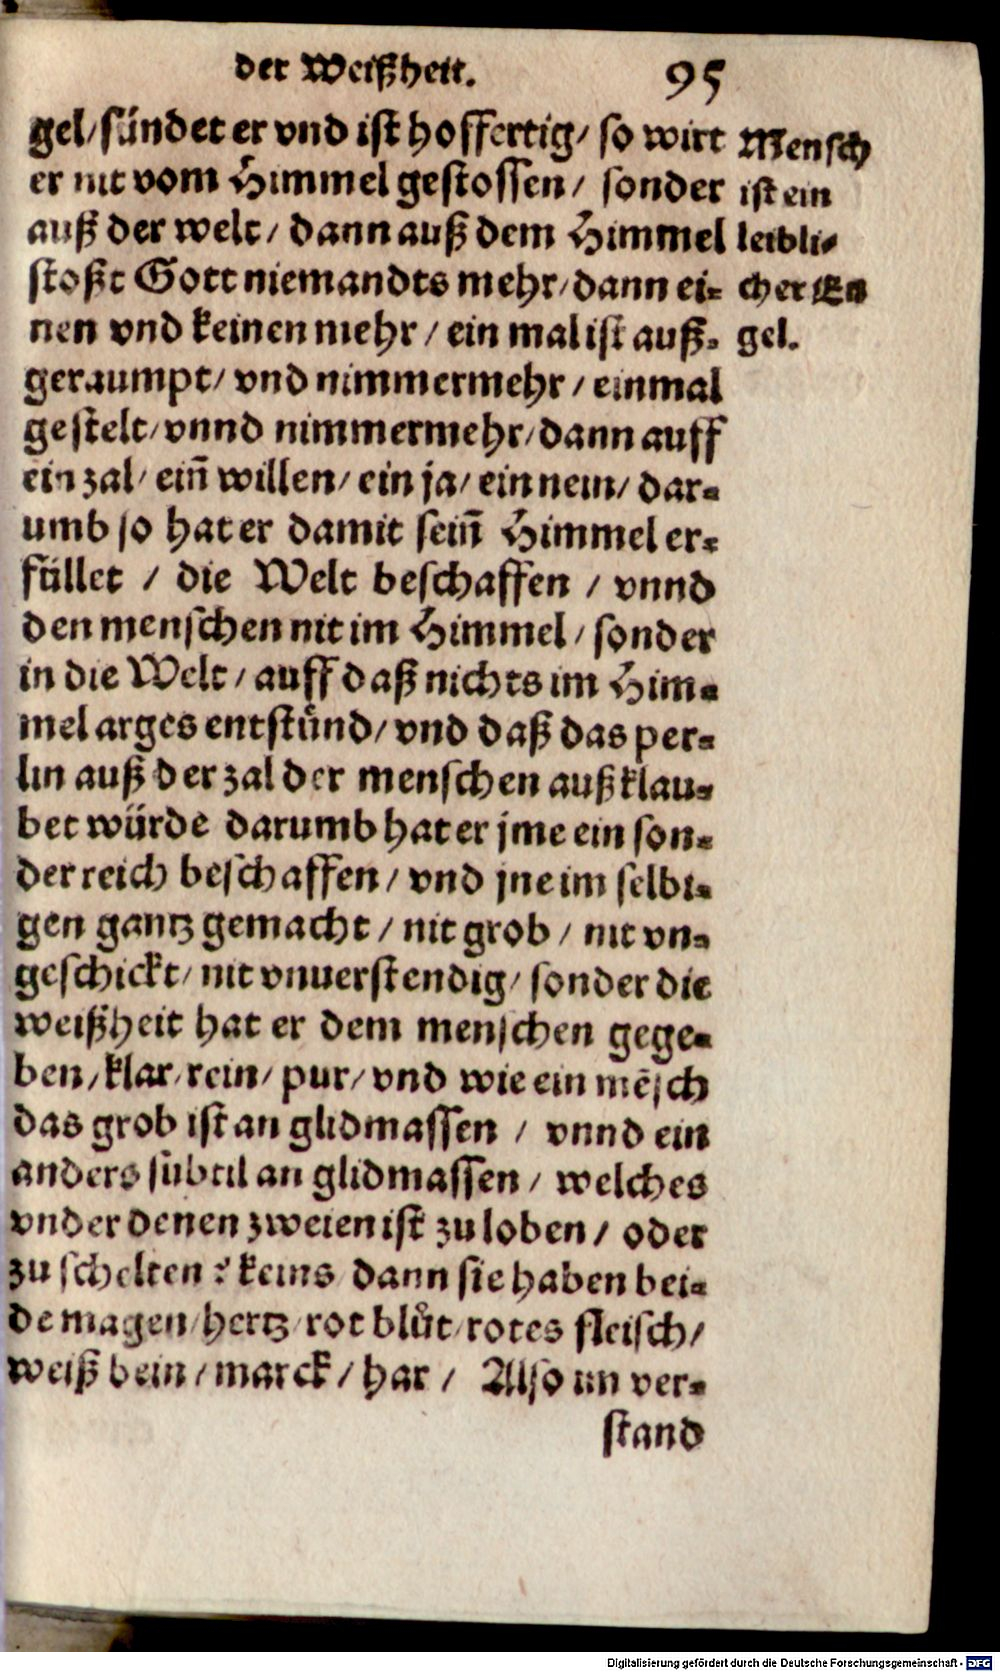 der Weißheit. 95
gel/ sündet er vnd ist hoffertig/ so wirt
er nit vom Himmel gestossen/ sonder
auß der welt/ dann auß dem Himmel
stoßt Gott niemandts mehr/ dann ei-
nen vnd keinen mehr/ ein mal ist auß-
geraumpt/ vnd nimmermehr/ einmal
gestelt/ vnnd nimmermehr/ dann auff
ein zal/ ein̄ willen/ ein ja/ ein nein/ dar-
umb so hat er damit sein̄ Himmel er-
füllet / die Welt beschaffen / vnnd
den menschen nit im Himmel/ sonder
in die Welt/ auff daß nichts im Him-
mel arges entstünd/ vnd daß das per-
lin auß der zal der menschen außklau-
bet würde darumb hat er jme ein son-
der reich beschaffen/ vnd jne im selbi-
gen gantz gemacht/ nit grob/ nit vn-
geschickt/ nit vnuerstendig/ sonder die
weißheit hat er dem menschen gege-
ben/ klar/ rein/ pur/ vnd wie ein mēsch
das grob ist an glidmassen / vnnd ein
anders sübtil an glidmassen/ welches
vnder denen zweien ist zu loben/ oder
zu schelten? keins dann sie haben bei-
de magen/ hertz/ rot blůt/ rotes fleisch/
weiß bein/ marck/ har/ Also im ver-
stand
Mensch
ist ein
leibli-
cher En
gel.
Digitalisierung gefördert durch die Deutsche Forschungsgemeinschaft - DFG